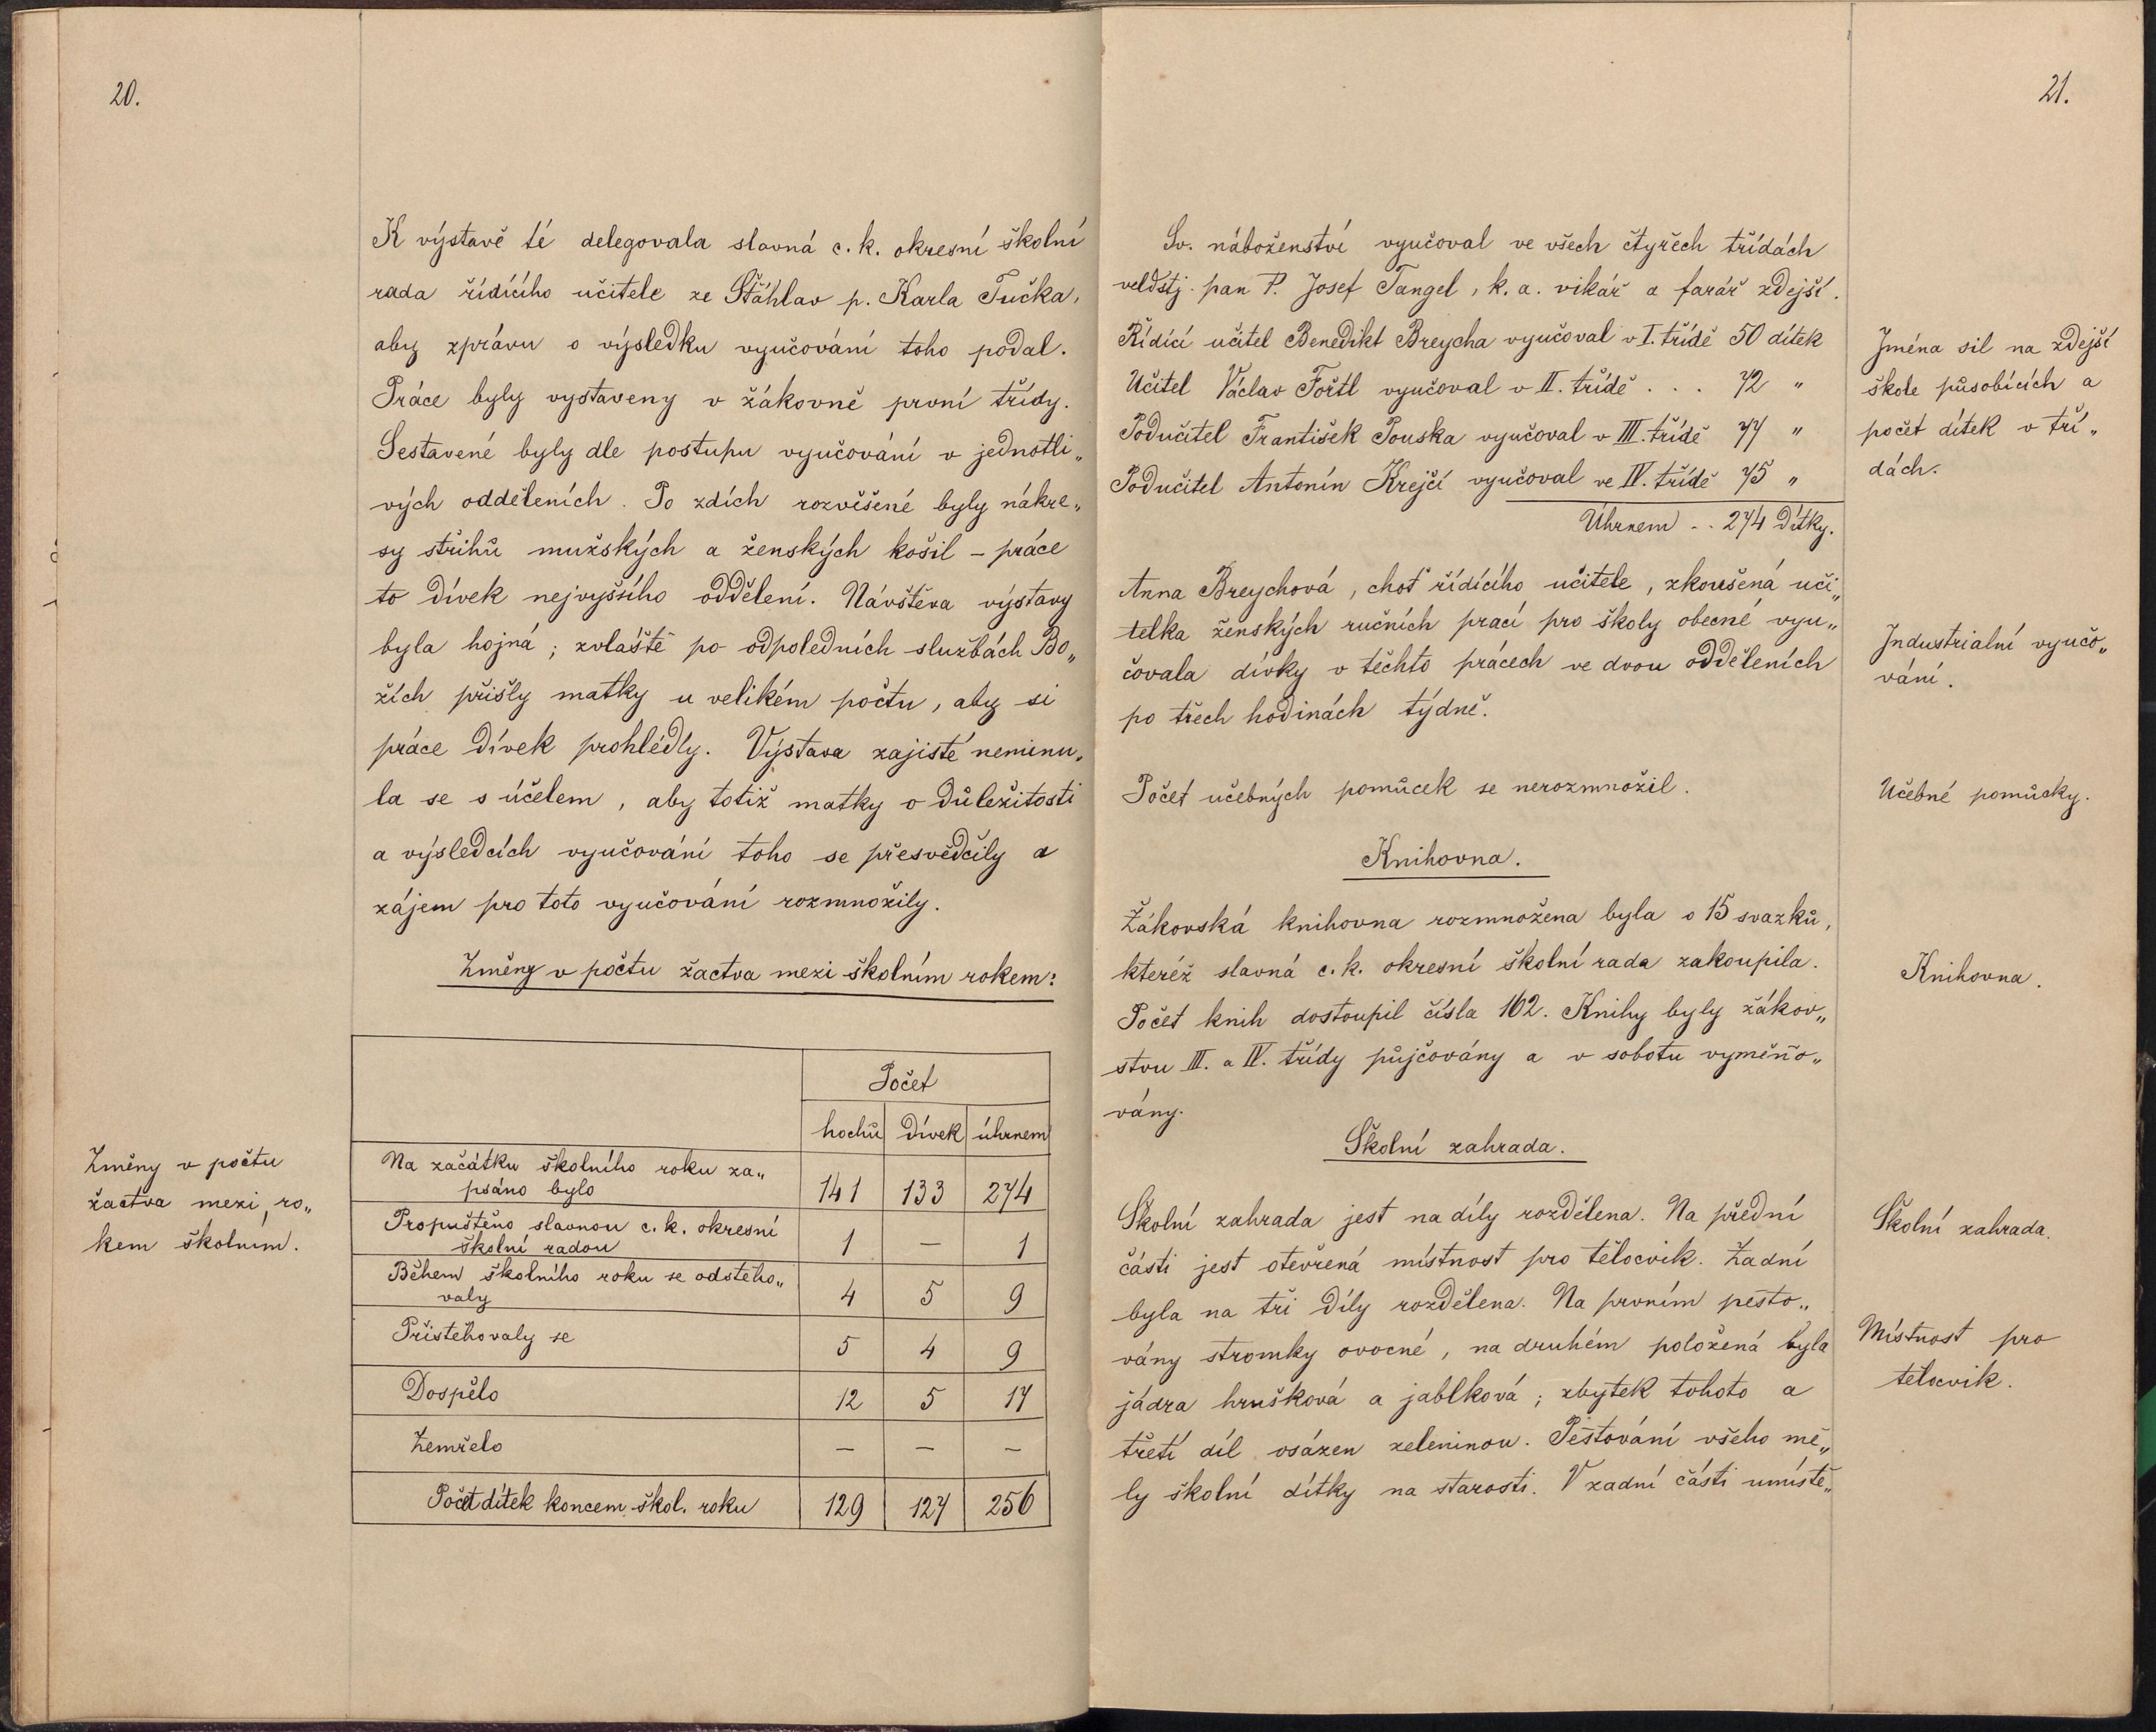 20.
K výstavě té delegovala slavná c. k. okresní školní
rada řídícího učitele ze Šťáhlav p. Karla Tučka,
aby zprávu o výsledku vyučování toho podal.
Práce byly vystaveny v žákovně první třídy.
Sestavené byly dle postupu vyučování v jednotli„
vých odděleních. Po zdích rozvěšené byly nákre„
sy střihů mužských a ženských košil – práce
to dívek nejvyššího oddělení. Návštěva výstavy
byla hojná; zvláště po odpoledních službách Bo„
žích přišly matky u velikém počtu, aby si
práce dívek prohlédly. Výstava zajisté neminu„
la se s účelem, aby totiž matky o důležitosti
a výsledcích vyučování toho se přesvědčily a
zájem pro toto vyučování rozmnožily.
Změny v počtu žactva mezi školním rokem:
Změny v počtu
žactva mezi ro„
kem školním.
Počet
hochů dívek úhrnem
Na začátku školního roku za„
psáno bylo 141 133 274
Propuštěno slavnou c. k. okresní
školní radou 1 — 1
Během školního roku se odstěho„
valy 4 5 9
Přistěhovaly se 5 4 9
Dospělo 12 5 17
Zemřelo — — —
Počet dítek koncem škol. roku 129 127 256
21.
Sv. náboženství vyučoval ve všech čtyřech třídách
veldstj. pan P. Josef Tangel, k. a. vikář a farář zdejší.
Řídící učitel Benedikt Breycha vyučoval v I. třídě 50 dítek
Učitel Václav Fořtl vyučoval v II. třídě . . . 72 „
Podučitel František Pouska vyučoval v III. třídě 77 „
Podučitel Antonín Krejčí vyučoval ve IV. třídě 75 „
Úhrnem . . 274 dítky.
Jména sil na zdejší
škole působících a
počet dítek v tří„
dách.
Anna Breychová, choť řídícího učitele, zkoušená uči„
telka ženských ručních prací pro školy obecné vyu„
čovala dívky v těchto prácech ve dvou odděleních
po třech hodinách týdně.
Industrialní vyučo„
vání.
Počet učebných pomůcek se nerozmnožil.
Učebné pomůcky.
Knihovna.
Žákovská knihovna rozmnožena byla o 15 svazků,
kteréž slavná c. k. okresní školní rada zakoupila.
Počet knih dostoupil čísla 162. Knihy byly žákov„
stvu III. a IV. třídy půjčovány a v sobotu vyměňo„
vány.
Knihovna.
Školní zahrada.
Školní zahrada jest na díly rozdělena. Na přední
části jest otevřená místnost pro tělocvik. Zadní
byla na tři díly rozdělena. Na prvním pěsto„
vány stromky ovocné, na druhém položená byla
jádra hrušková a jablková; zbytek tohoto a
třetí díl osázen zeleninou. Pěstování všeho mě„
ly školní dítky na starosti. V zadní části umístě„
Školní zahrada.
Místnost pro
tělocvik.